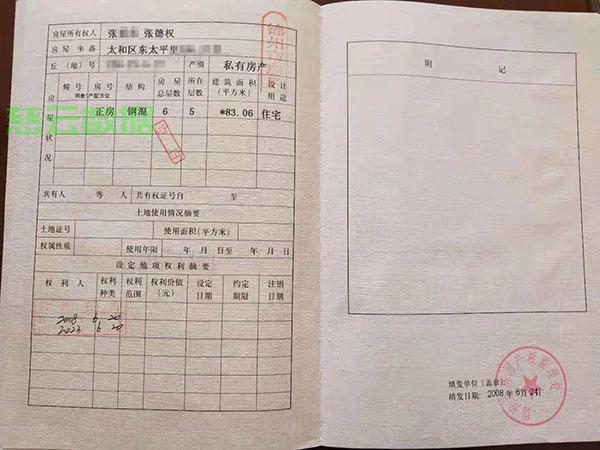 房屋所有权人 张 张德权
房屋坐落 太和区东太平里
丘(地)号 产别 私有房产
幢号 房号 结构 房屋总层数 所在层数 建筑面积(平方米) 设计用途
房屋状况
正房 钢混 6 5 *83.06 住宅
慈云数据
共有人 等 人 共有权证号自 至
土地使用情况摘要
土地证号 使用面积(平方米)
权属性质 使用年限 年 月 日至 年 月 日
设定他项权利摘要
权利人 权利种类 权利范围 权利价值(元) 设定日期 约定期限 注销日期
2008 6 20
2023 6 20
附 记
填发单位(盖章)
填发日期: 2008年6月24日